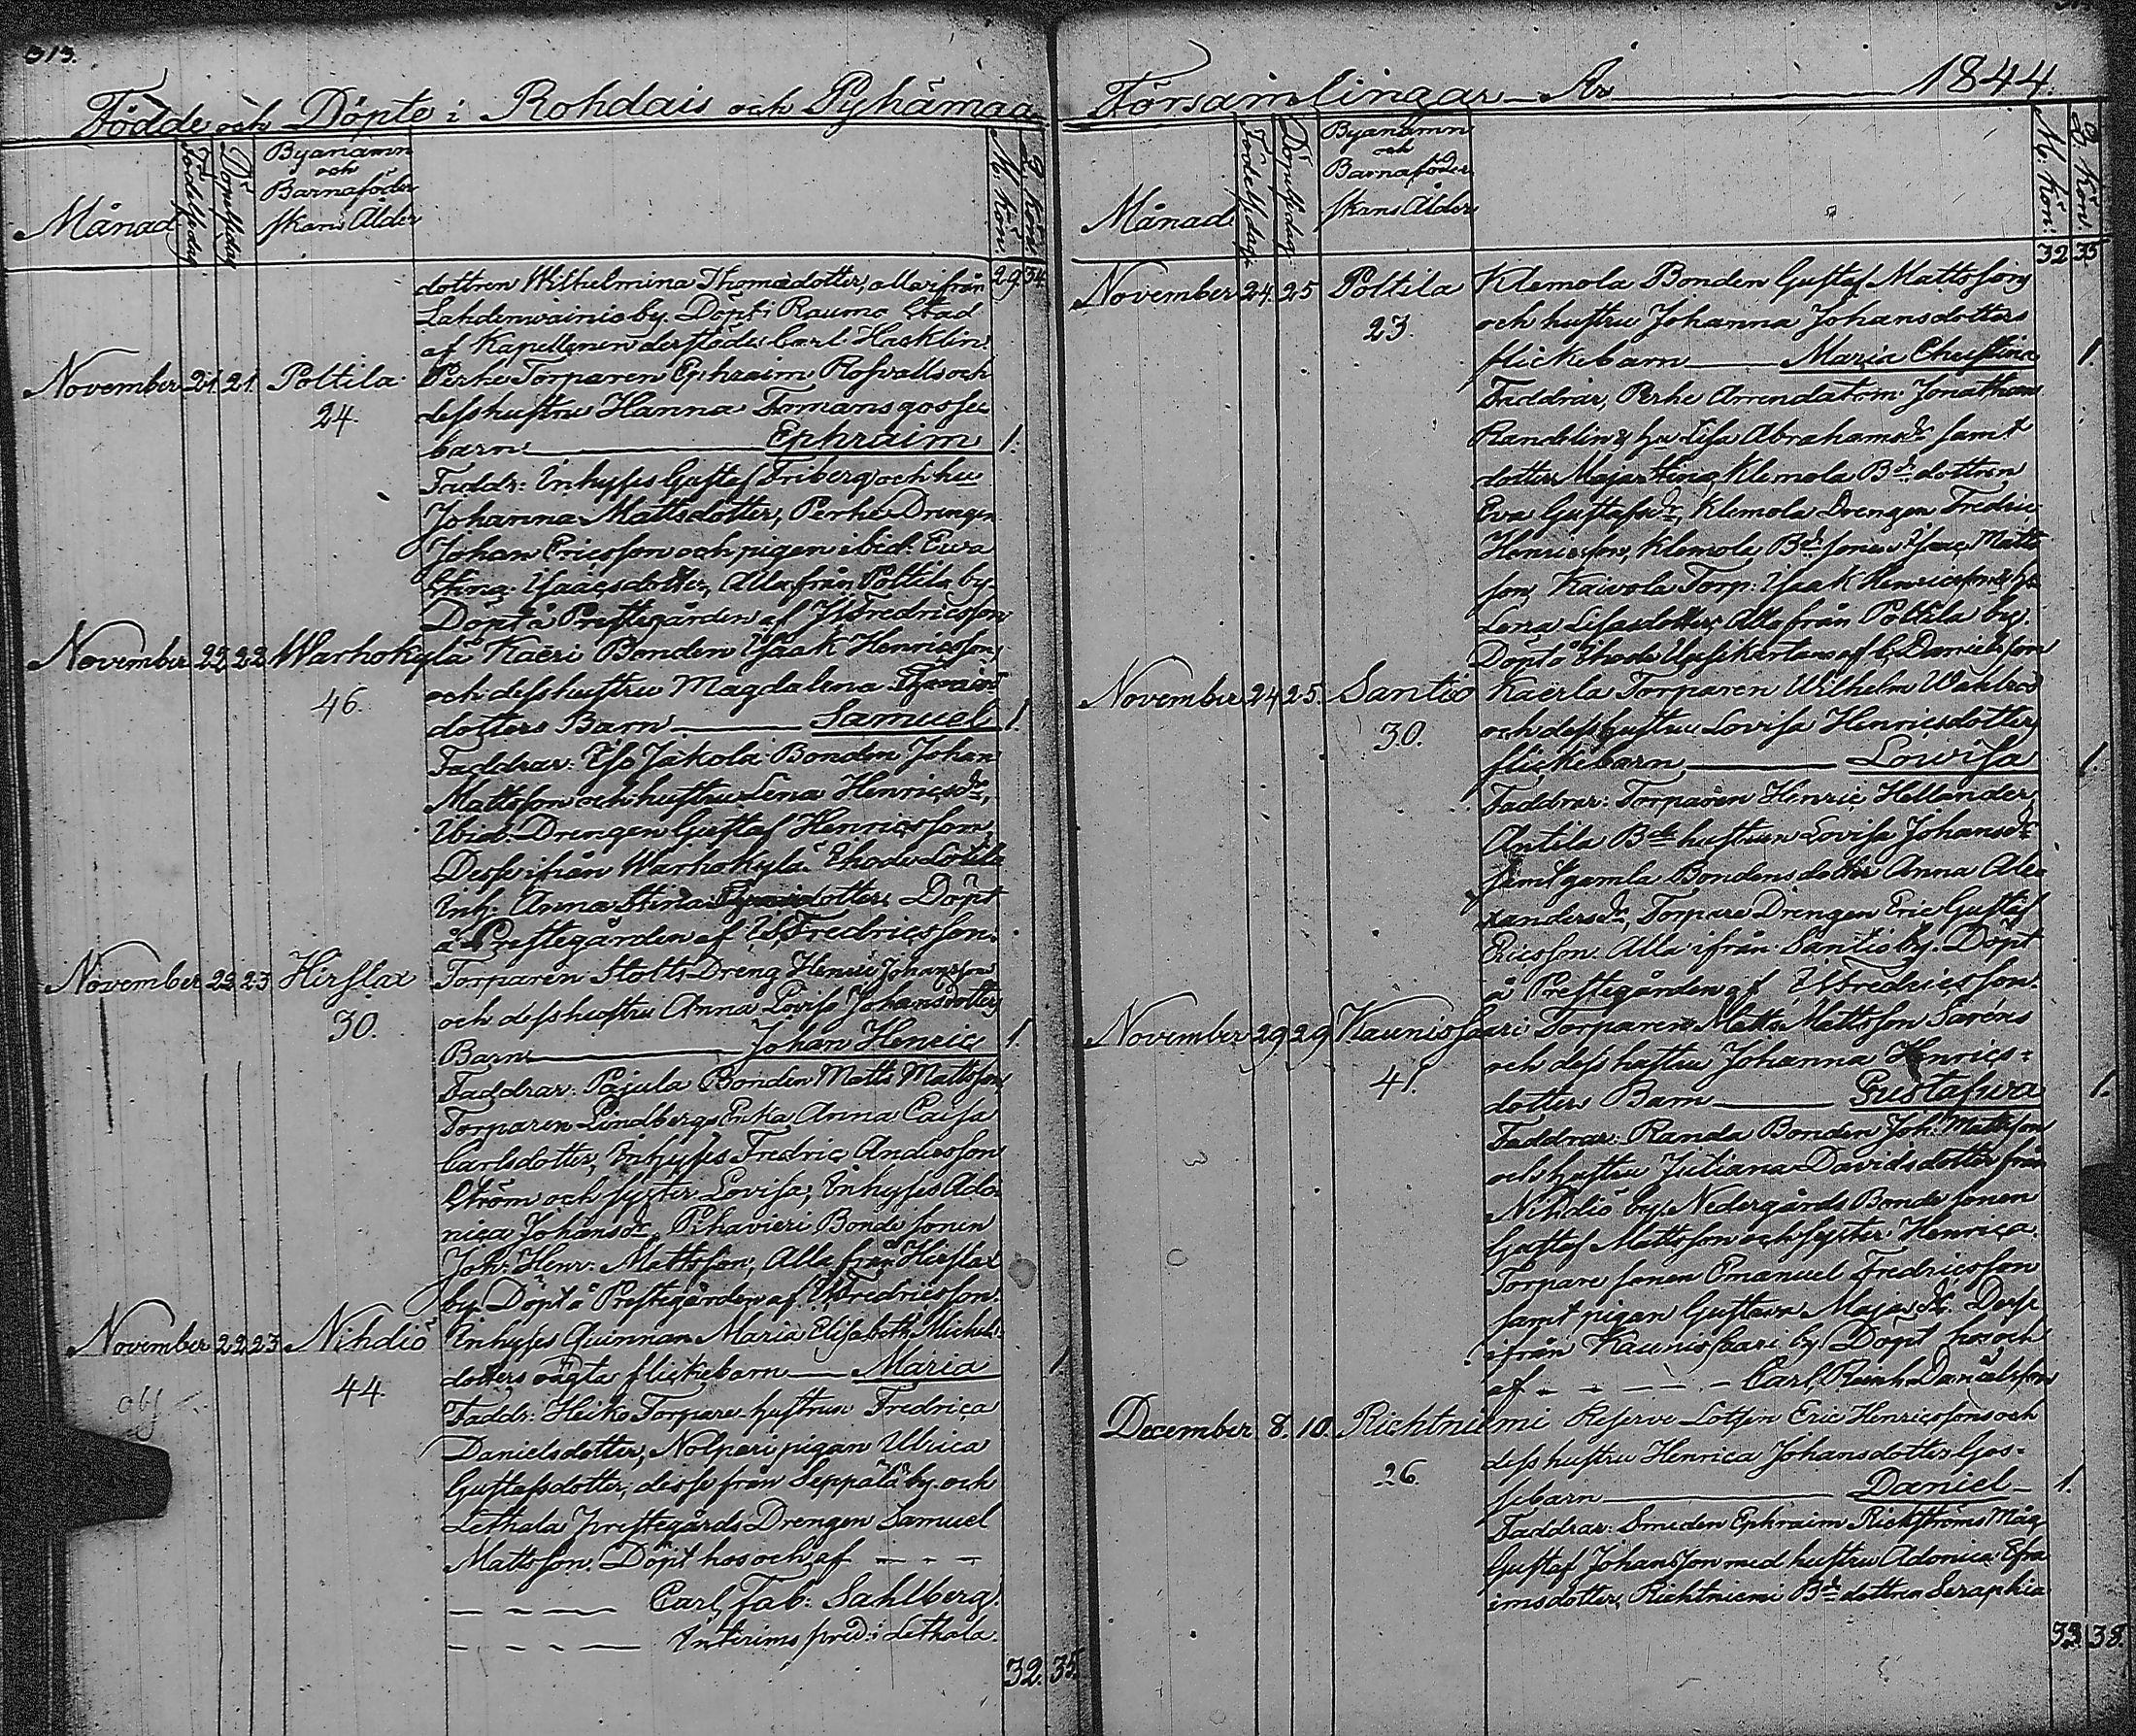 313.
Födde och Döpte i Rohdais och Pyhämaa
Månad
Födelsedag
Döpelsedag
Byanamn
och
Barnaföder
skans Ålder
M: kön.
Q: kön.
29 34
dottren Wilhelmina Thomasdotter, alla ifrån
Lahdenwainio by. Döpt i Raumo Stad
af Kapellanen derstädes Carl Hacklin.
November 21. 21. Poltila
24.
Perhe Torparen Ephraim Rosvalls och
dess hustru Hanna Tomans gosse
barn Ephraim 1.
Faddr: Inhyses Gustaf Friberg och hu
Johanna Mattsdotter, Perhe Drengen
Johan Ericsson och pigan ibid: Ewa
Stina Isaacsdotter, Alla från Poltila by.
Döpt å Prestegården af Is. Fredricsson
November 22 22 Warhokylä
46.
Kaeri Bonden Isaak Henricssons
och dess hustru Magdalena
dotters Barn Samuel 1.
Faddrar: Eso Jakola Bonden Johan
Mattsson och hustru Lena Henricsdr,
Ibid. Drengen Gustaf Henricsson,
Desse ifrån Warhokylä. Ehode
Inh: Anna Stina dotter Döpt
å Prestegården af Is. Fredricsson.
November 22 23 Hirslax
30.
Torparen Stolts Dreng Henric Johanssons
och dess hustru Anna Lovisa Johansdotters
Barn Johan Henric 1.
Faddrar: Pajula Bonden Matts Mattsson,
Torparen Lindbergs Enka Anna Caisa
Carlsdotter, Inhyses Fredric Andersson
Ström och syster Lovisa, Inhyses Ado
nica Johansdr, Pihavieri Bonde sonen
Joh: Henr: Mattsson, Alla från Hirslax
by. Döpt å Prestegården af Is. Fredricsson.
November 22 23 Nihdiö
44
Inhyses Quinnan Maria Elisabeth Michels
dotters oägta flickebarn Maria 1.
Faddr: Heiko Torpare hustrun Fredrica
Danielsdotter, Nolpari pigan Ulrica
Gustafsdotter, desse från Seppälä by. och
Lethala prestegårds Drengen Samuel
Mattsson. Döpt hos och af
Carl Fab: Sahlberg.
Interims pred: i Lethala.
32. 35.
Församlingar År 1844.
Månad
Födelsedag
Döpelsedag
Byanamn
och
Barnaföder
skans Ålder
M: kön.
Q: kön.
32 35
November 24. 25 Poltila
23.
Klemola Bonden Gustaf Mattssons
och hustru Johanna Johansdotters
flickebarn Maria Christina 1.
Faddrar, Perhe Arrendatorn Jonathan
Randelin & hu Lisa Abrahamsdr samt
dotter Maja Stina, Klemola Bde dottren
Eva Gustafsdr, Klemola Drengen Fredric
Henricsson, Klemola Bde sonen Isaac Matts
son, Kaivola Torp: Isaak Henricsson & hu
Lena Lisasdotter, Alla från Poltila by.
Döpt å Ehode af C. Danielsson
November 24 25. Santio
30.
Kaerla Torparen Wilhelm Wahlroos
och dess hustru Lovisa Henricsdotters
flickebarn Lovisa 1.
Faddrar: Torparen Henric Hellander,
Antila Bde hustrun Lovisa Johansdr
samt gamla Bondens dotter Anna Alex
andersdr, Torpare Drengen Eric Gustaf
Ericsson. Alla ifrån Santio by. Döpt
å Prestegården af Is. Fredricsson.
November 29 29 Kaunissaari
41.
Torparen Matts Mattsson Saréns
och dess hustru Johanna Henrics-
dotters Barn Gustafwa 1.
Faddrar: Randa Bonden Joh: Mattsson
och hustru Juliana Davidsdotter från
Nihdiö by, Nedergårds Bonde sonen
Gustaf Mattsson och syster Henrica.
Torpare sonen Emanuel Fredricsson
samt pigan Gustava Majasdr. Desse
ifrån Kaunissaari by Döpt hos och
af Carl Reinh. Danielsson
December 8. 10. Richtniemi
26.
Reserve Lotsen Eric Henricssons och
dess hustru Henrica Johansdotters Gos-
sebarn Daniel 1.
Faddrar: Smeden Ephraim Rickströms Måg
Gustaf Johansson med hustru Adonica Efra
imsdotter, Richtniemi Bde dottren Seraphia
33. 38.